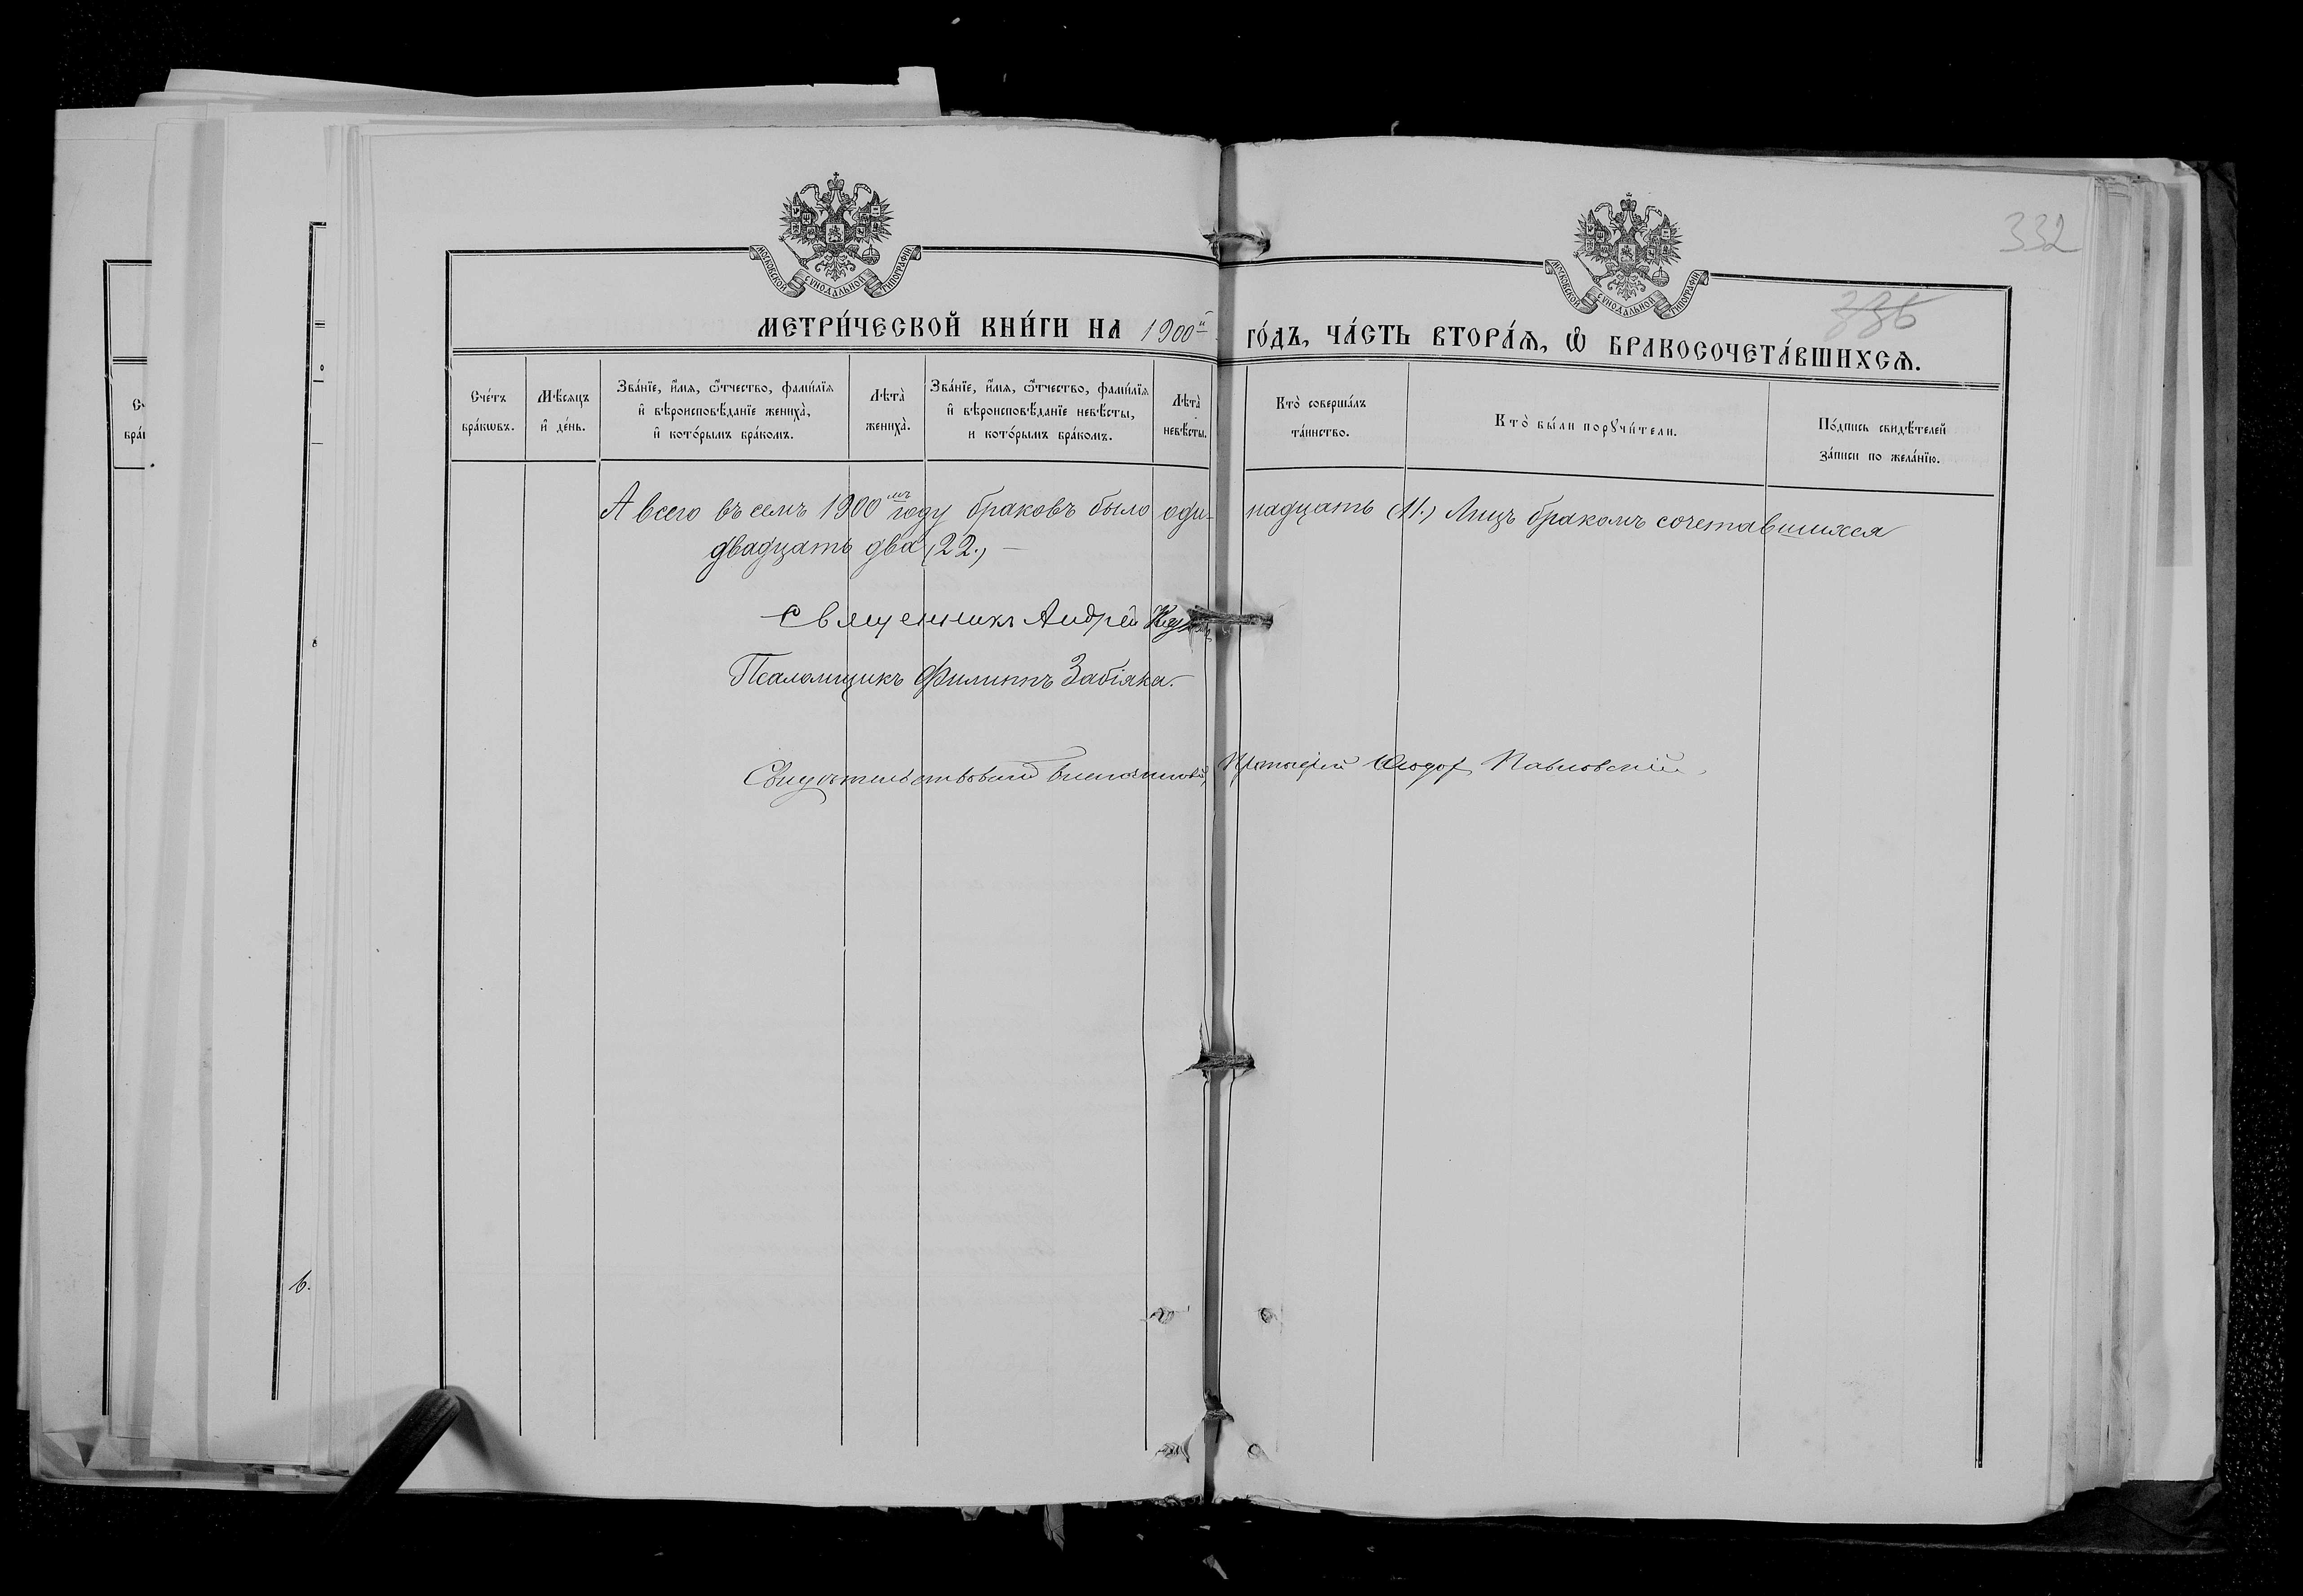 332
336
МОСКОВСКОЙ СѴНОДАЛЬНОЙ ТИПОГРАФІИ
МОСКОВСКОЙ СѴНОДАЛЬНОЙ ТИПОГРАФІИ
МЕТРИ́ЧЕСКОЙ КНИ́ГИ НА 1900й ГО́ДЪ, ЧА́СТЬ ВТОРА́Ѧ, Ѽ БРАКОСОЧЕТА́ВШИХСѦ.
Сче́тъ бра́кѡвъ.
Мѣ́сяцъ и҆ де́нь.
Зва́нїе, и҆́мя, ѻ҆́тчество, фами́лїя и҆ вѣроисповѣ́данїе жениха̀, и҆ кото́рымъ бра́комъ.
Лѣта̀ жениха̀.
Зва́нїе, и҆́мя, ѻ҆́тчество, фами́лїя и҆ вѣроисповѣ́данїе невѣ́сты, и кото́рымъ бра́комъ.
Лѣта̀ невѣ́сты.
Кто̀ соверша́лъ та́инство.
Кто̀ бы́ли порꙋчи́тели.
По́дпись свидѣ́телей за́писи по жела́нїю.
А всего въ семъ 1900мъ году браковъ было оди-надцать (11.) Лицъ бракомъ сочетавшихся
двадцать два (22.) —
Священникъ Андрей
Псаломщикъ Филиппъ Забіяка.
Свидѣтельствовалъ Благочинный, Протоіерей Ѳеодоръ Павловскій.
6.